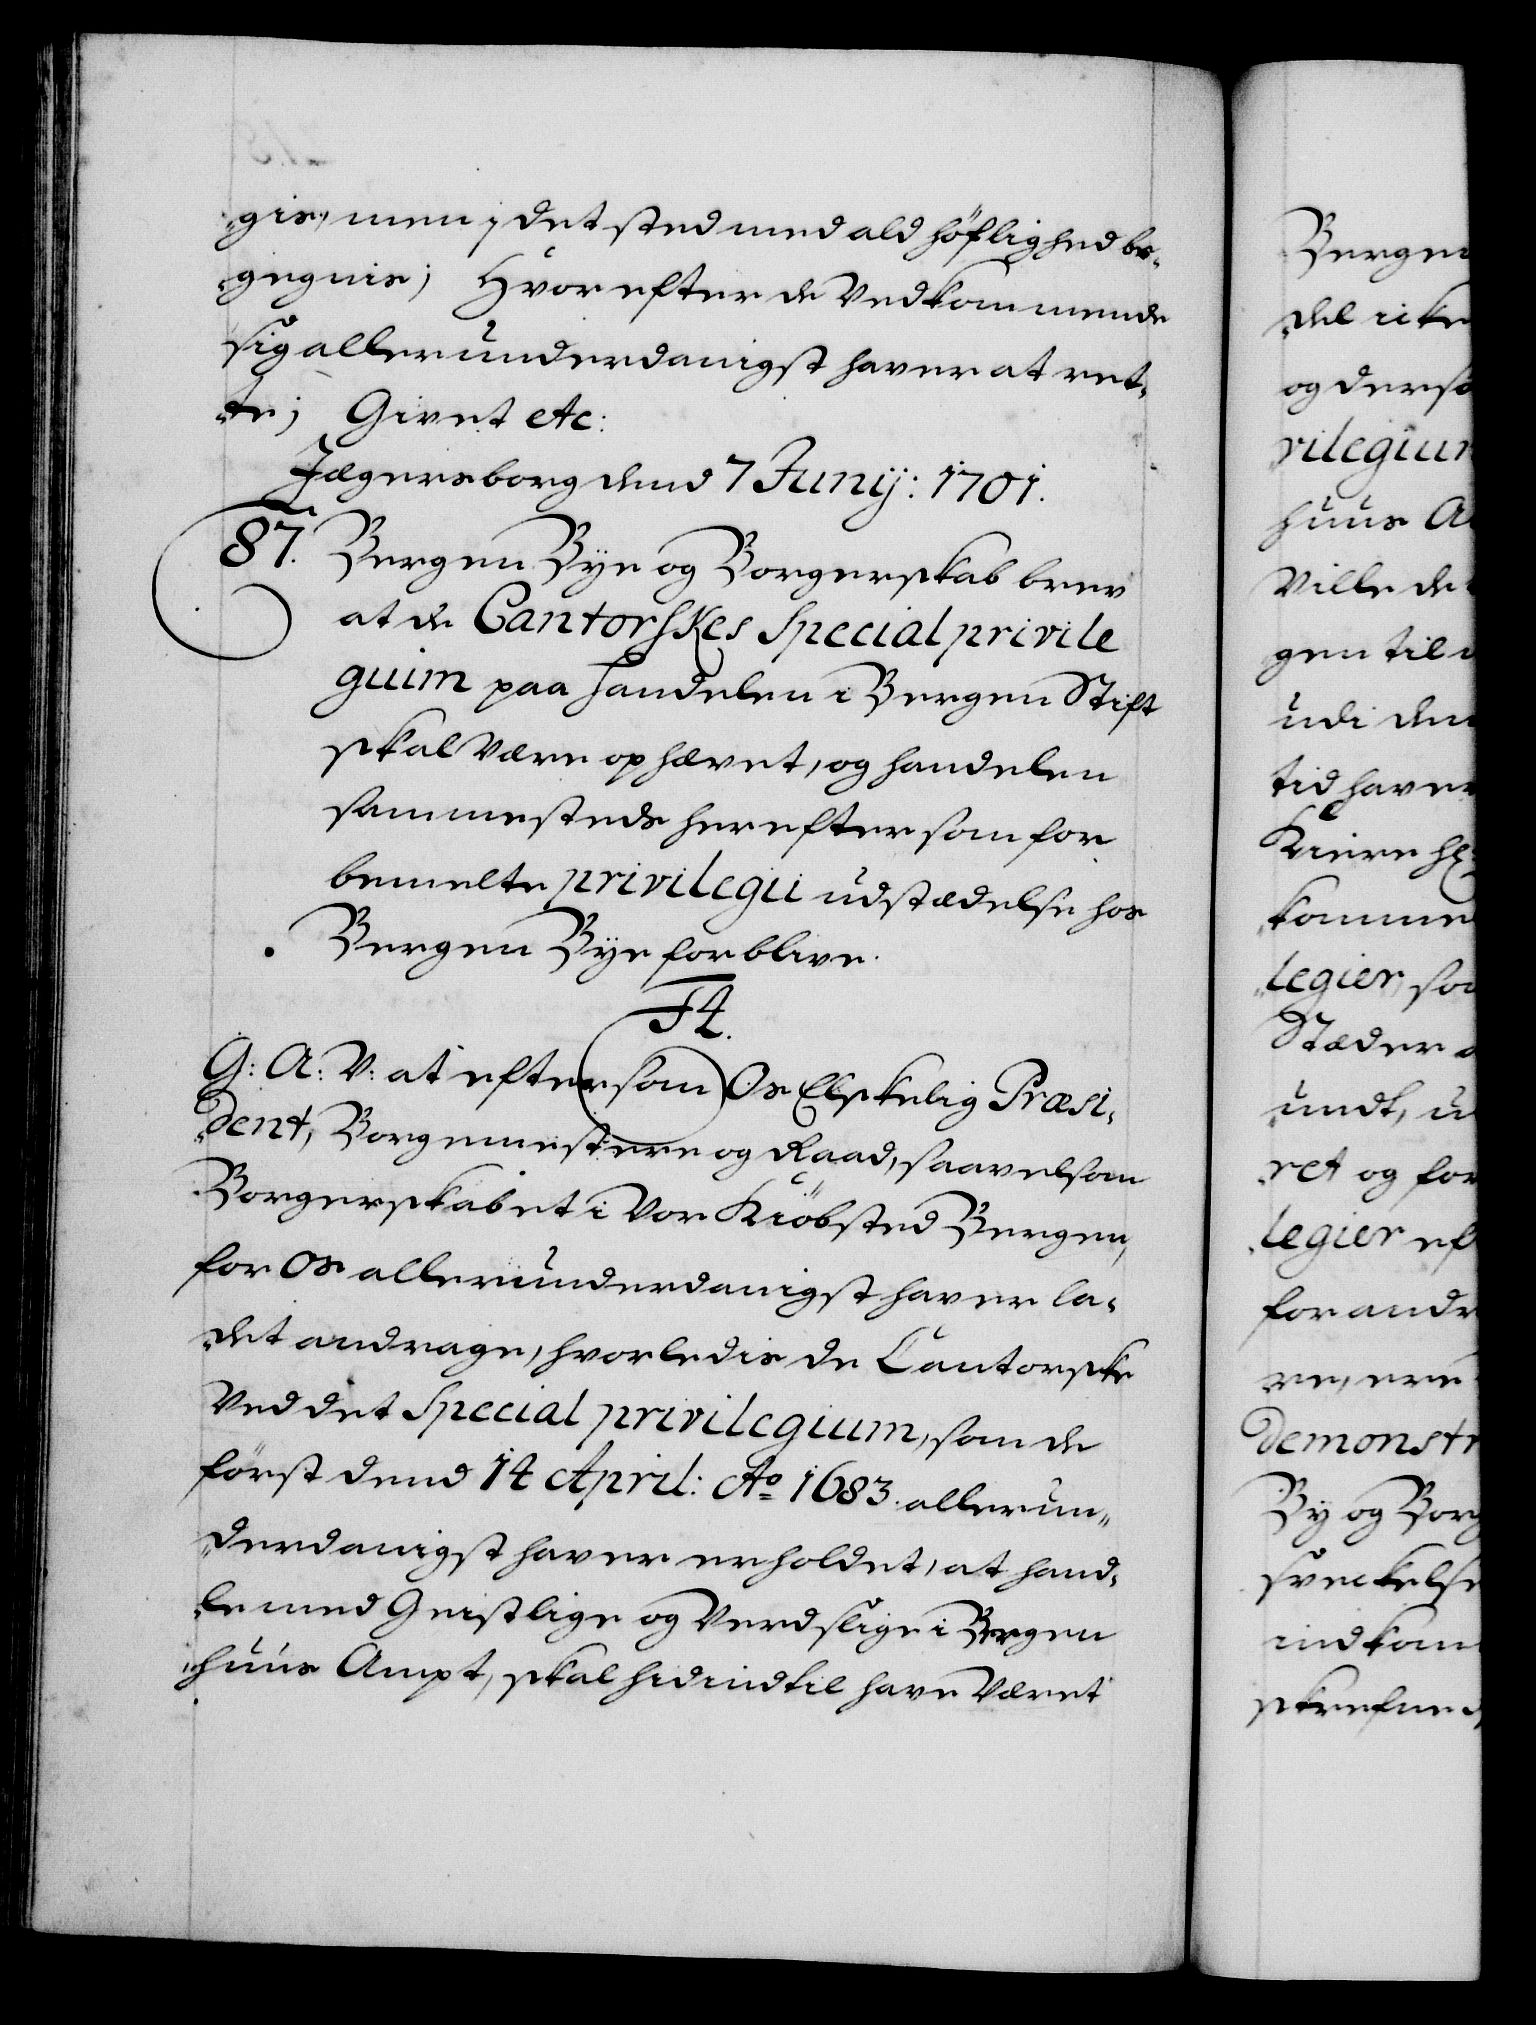 gis, men i det sted med ald höflighed be-
gegnis; Hvorefter de Vedkommende
sig allerunderdanigst haver at ret-
te; Givet etc:
Jægersborg dend 7 Junij: 1701.
87. Bergen Bÿe og Borgerskab brev
at de Cantorskes Special privile
guim paa handelen i Bergen Stift
skal være ophævet, og handelen
sammesteds herefter som for
bemelte privilegii udstædelse hos
Bergen Bÿe forblive.
F4.
G: A: V: at eftersom Os Elskelig Præsi-
dent, Borgemestere og Raad, saavelsom
Borgerskabet i Vor Kiöbsted Bergen,
for Os allerunderdanigst haver la-
det andrage, hvorledis de Cantorske
ved det Special privilegium, som de
först dend 14 April: Ao 1683. allerun-
derdanigst haver erholdet, at hand-
le med Geistlige og Verdslige i Bergen
huus Ampt, skal hidindtil have været
Bergen
del icke
og derso
vilegium
huus A
Ville de
gen til
udi den
tid haver
Kiere
komme
legier, so
Stæder
undt, u
ret og for
legier ef
forandr
re, ere
demonstr
By og Borg
sveckelse
indkom
skrefne